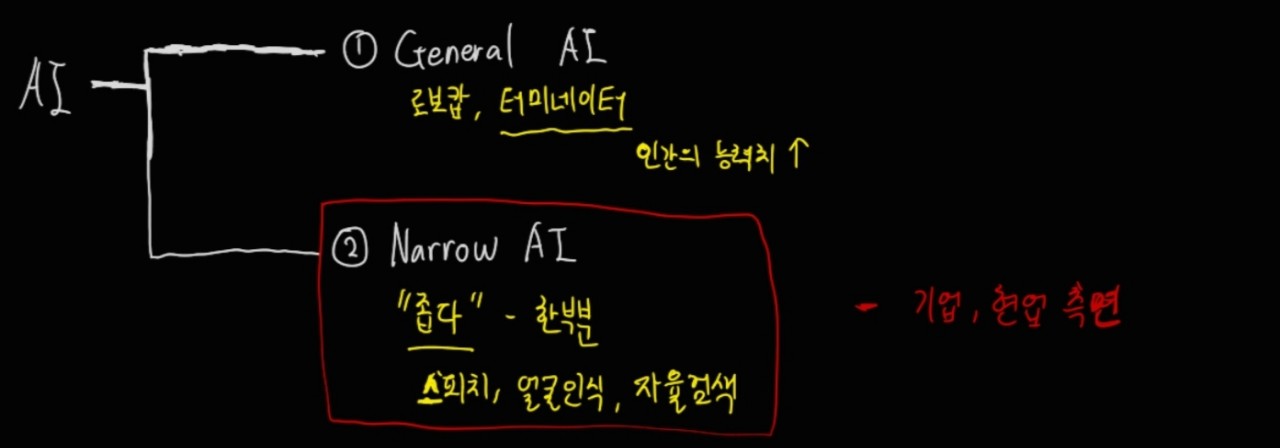 AI
① General AI
로보캅, 터미네이터
인간의 능력치 ↑
② Narrow AI
"좁다" - 한부분
스피치, 얼굴인식, 자율검색
- 기업, 현업 측면